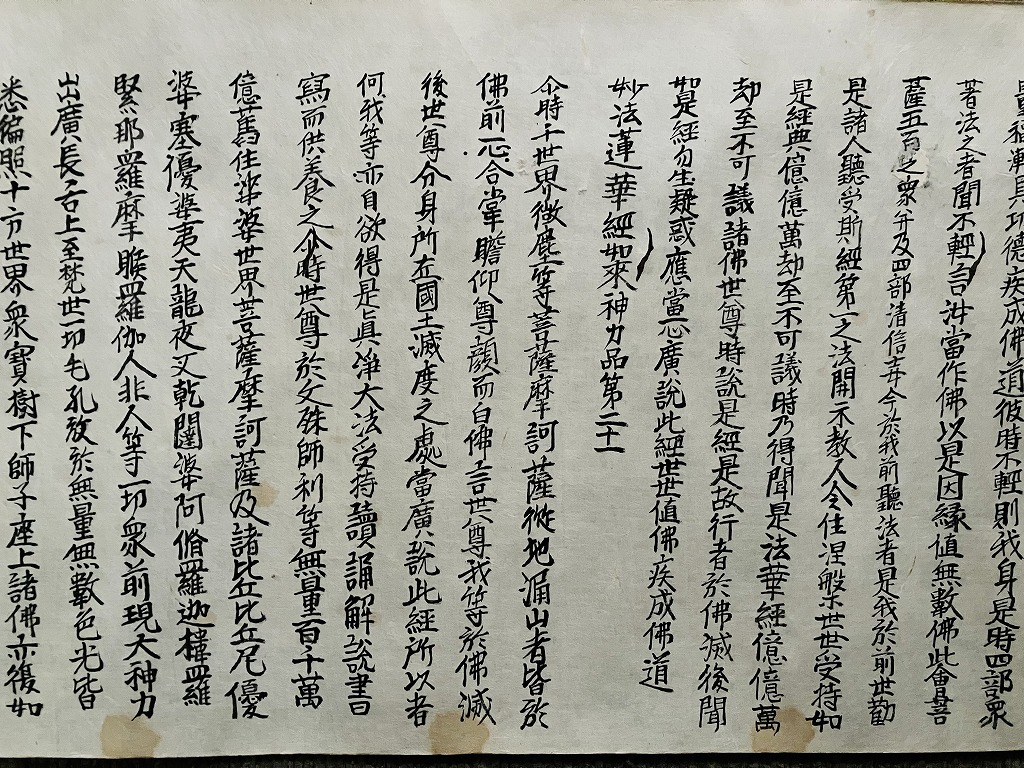 量猛漸具功德疾成佛道彼時不輕則我身是時四部衆
著法之者聞不輕言汝當作佛以是因緣值無數佛此會菩
薩五百之衆并及四部清信士女今於我前聽法者是我於前世勸
是諸人聽受斯經第一之法開示教人令住涅槃世世受持如
是經典億億萬劫至不可議時乃得聞是法華經億億萬
劫至不可議諸佛世尊時說是經是故行者於佛滅後聞
如是經勿生疑惑應當一心廣說此經世世值佛疾成佛道
妙法蓮華經如來神力品第二十一
尒時千世界微塵等菩薩摩訶薩從地涌出者皆於
佛前一心合掌瞻仰尊顏而白佛言世尊我等於佛滅
後世尊分身所在國土滅度之處當廣說此經所以者
何我等亦自欲得是真淨大法受持讀誦解說書
寫而供養之尒時世尊於文殊師利等無量百千萬
億舊住娑婆世界菩薩摩訶薩及諸比丘比丘尼優
婆塞優婆夷天龍夜叉乾闥婆阿脩羅迦樓羅
緊那羅摩睺羅伽人非人等一切衆前現大神力
出廣長舌上至梵世一切毛孔放於無量無數色光皆
悉徧照十方世界衆寶樹下師子座上諸佛亦復如